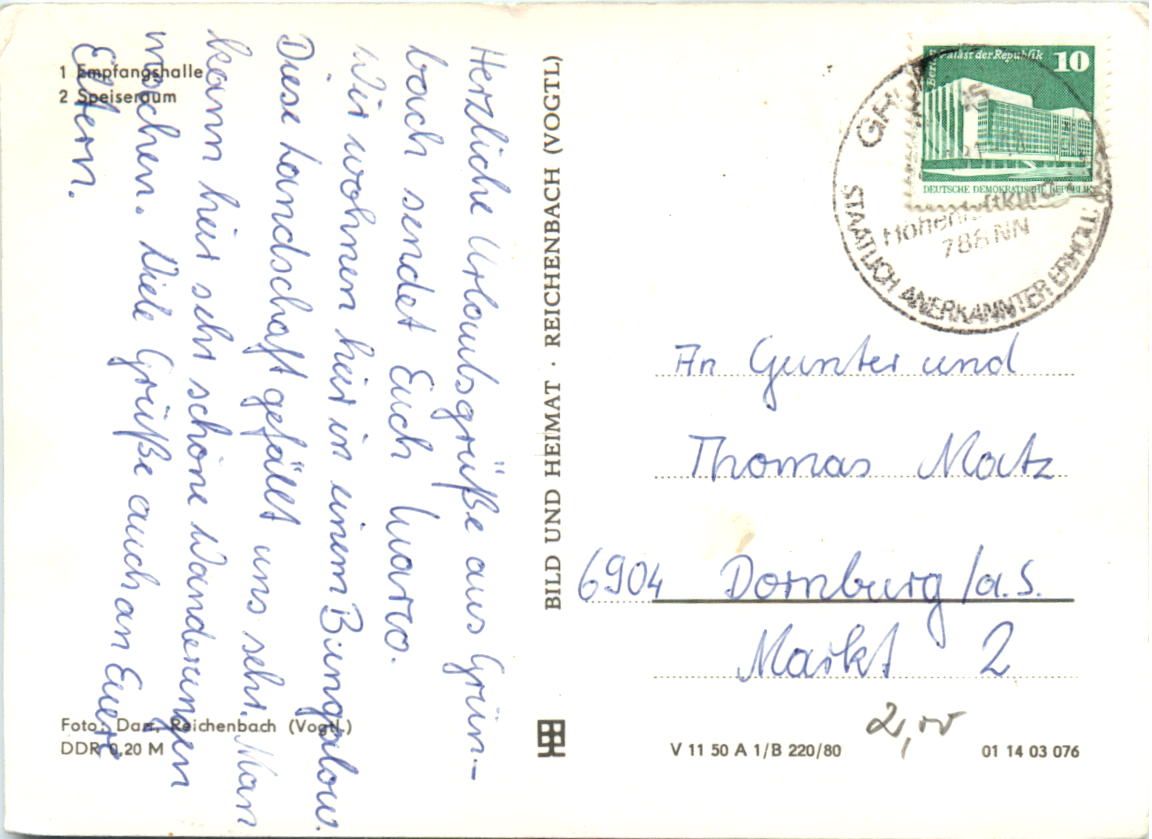 1 Empfangshalle
2 Speiseraum
Herzliche Urlaubsgrüße aus Grün-
bach sendet Euch Marco.
Wir wohnen hier in einem Bungalow.
Diese Landschaft gefällt uns sehr. Man
kann hier sehr schöne Wanderungen
machen. Viele Grüße auch an Eure
Eltern.
Foto: Darr, Reichenbach (Vogtl.)
DDR 0,20 M
BILD UND HEIMAT · REICHENBACH (VOGTL)
Berlin Palast der Republik 10
DEUTSCHE DEMOKRATISCHE REPUBLIK
788 NN
STAATLICH ANERKANNTER ERHOLUNGSORT
An Gunter und
Thomas Matz
6904 Dornburg/a.S.
Markt 2
2,00
V 11 50 A 1/B 220/80
01 14 03 076